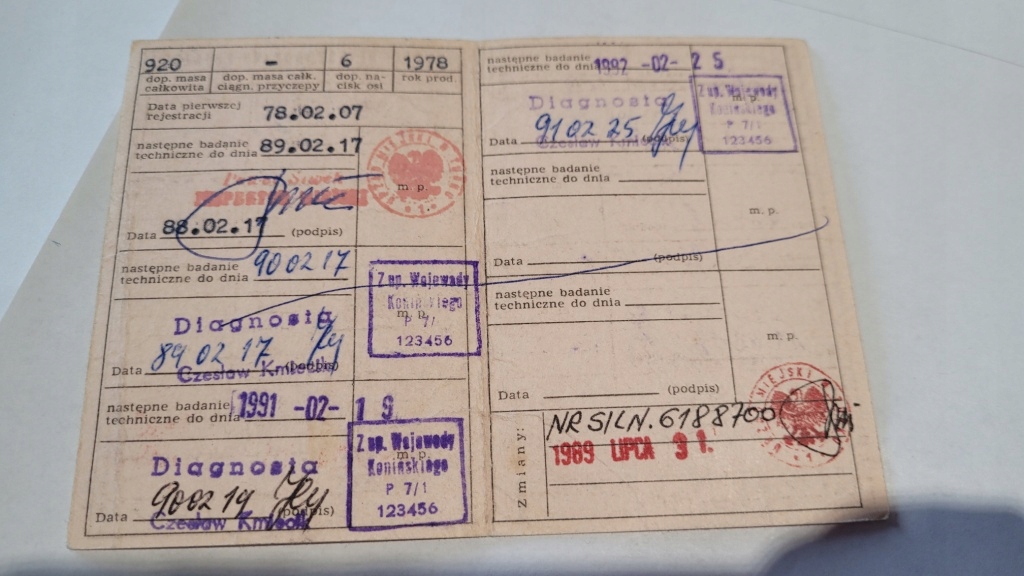 920 - 6 1978
dop. masa całkowita dop. masa całk. ciągn. przyczepy dop. nacisk osi rok prod.
Data pierwszej rejestracji 78.02.07
następne badanie techniczne do dnia 89.02.17
m. p.
Data 88.02.17 (podpis)
następne badanie techniczne do dnia 90 02 17
Z up. Wojewody
Konińskiego
m. p.
P 7/1
123456
Diagnosta
Data 89 02 17. (podpis)
Czesław Kmiecik
następne badanie techniczne do dnia 1991 -02- 19
Z up. Wojewody
Konińskiego
m. p.
P 7/1
123456
Diagnosta
Data 90 02 19 (podpis)
Czesław Kmiecik
następne badanie techniczne do dnia 1992 -02- 25
Z up. Wojewody
Konińskiego
m. p.
P 7/1
123456
Diagnosta
Data 91 02 25 (podpis)
następne badanie techniczne do dnia
m. p.
Data (podpis)
następne badanie techniczne do dnia
m. p.
Data (podpis)
Zmiany:
NR SILN. 6188700
1989 LIPCA 31.